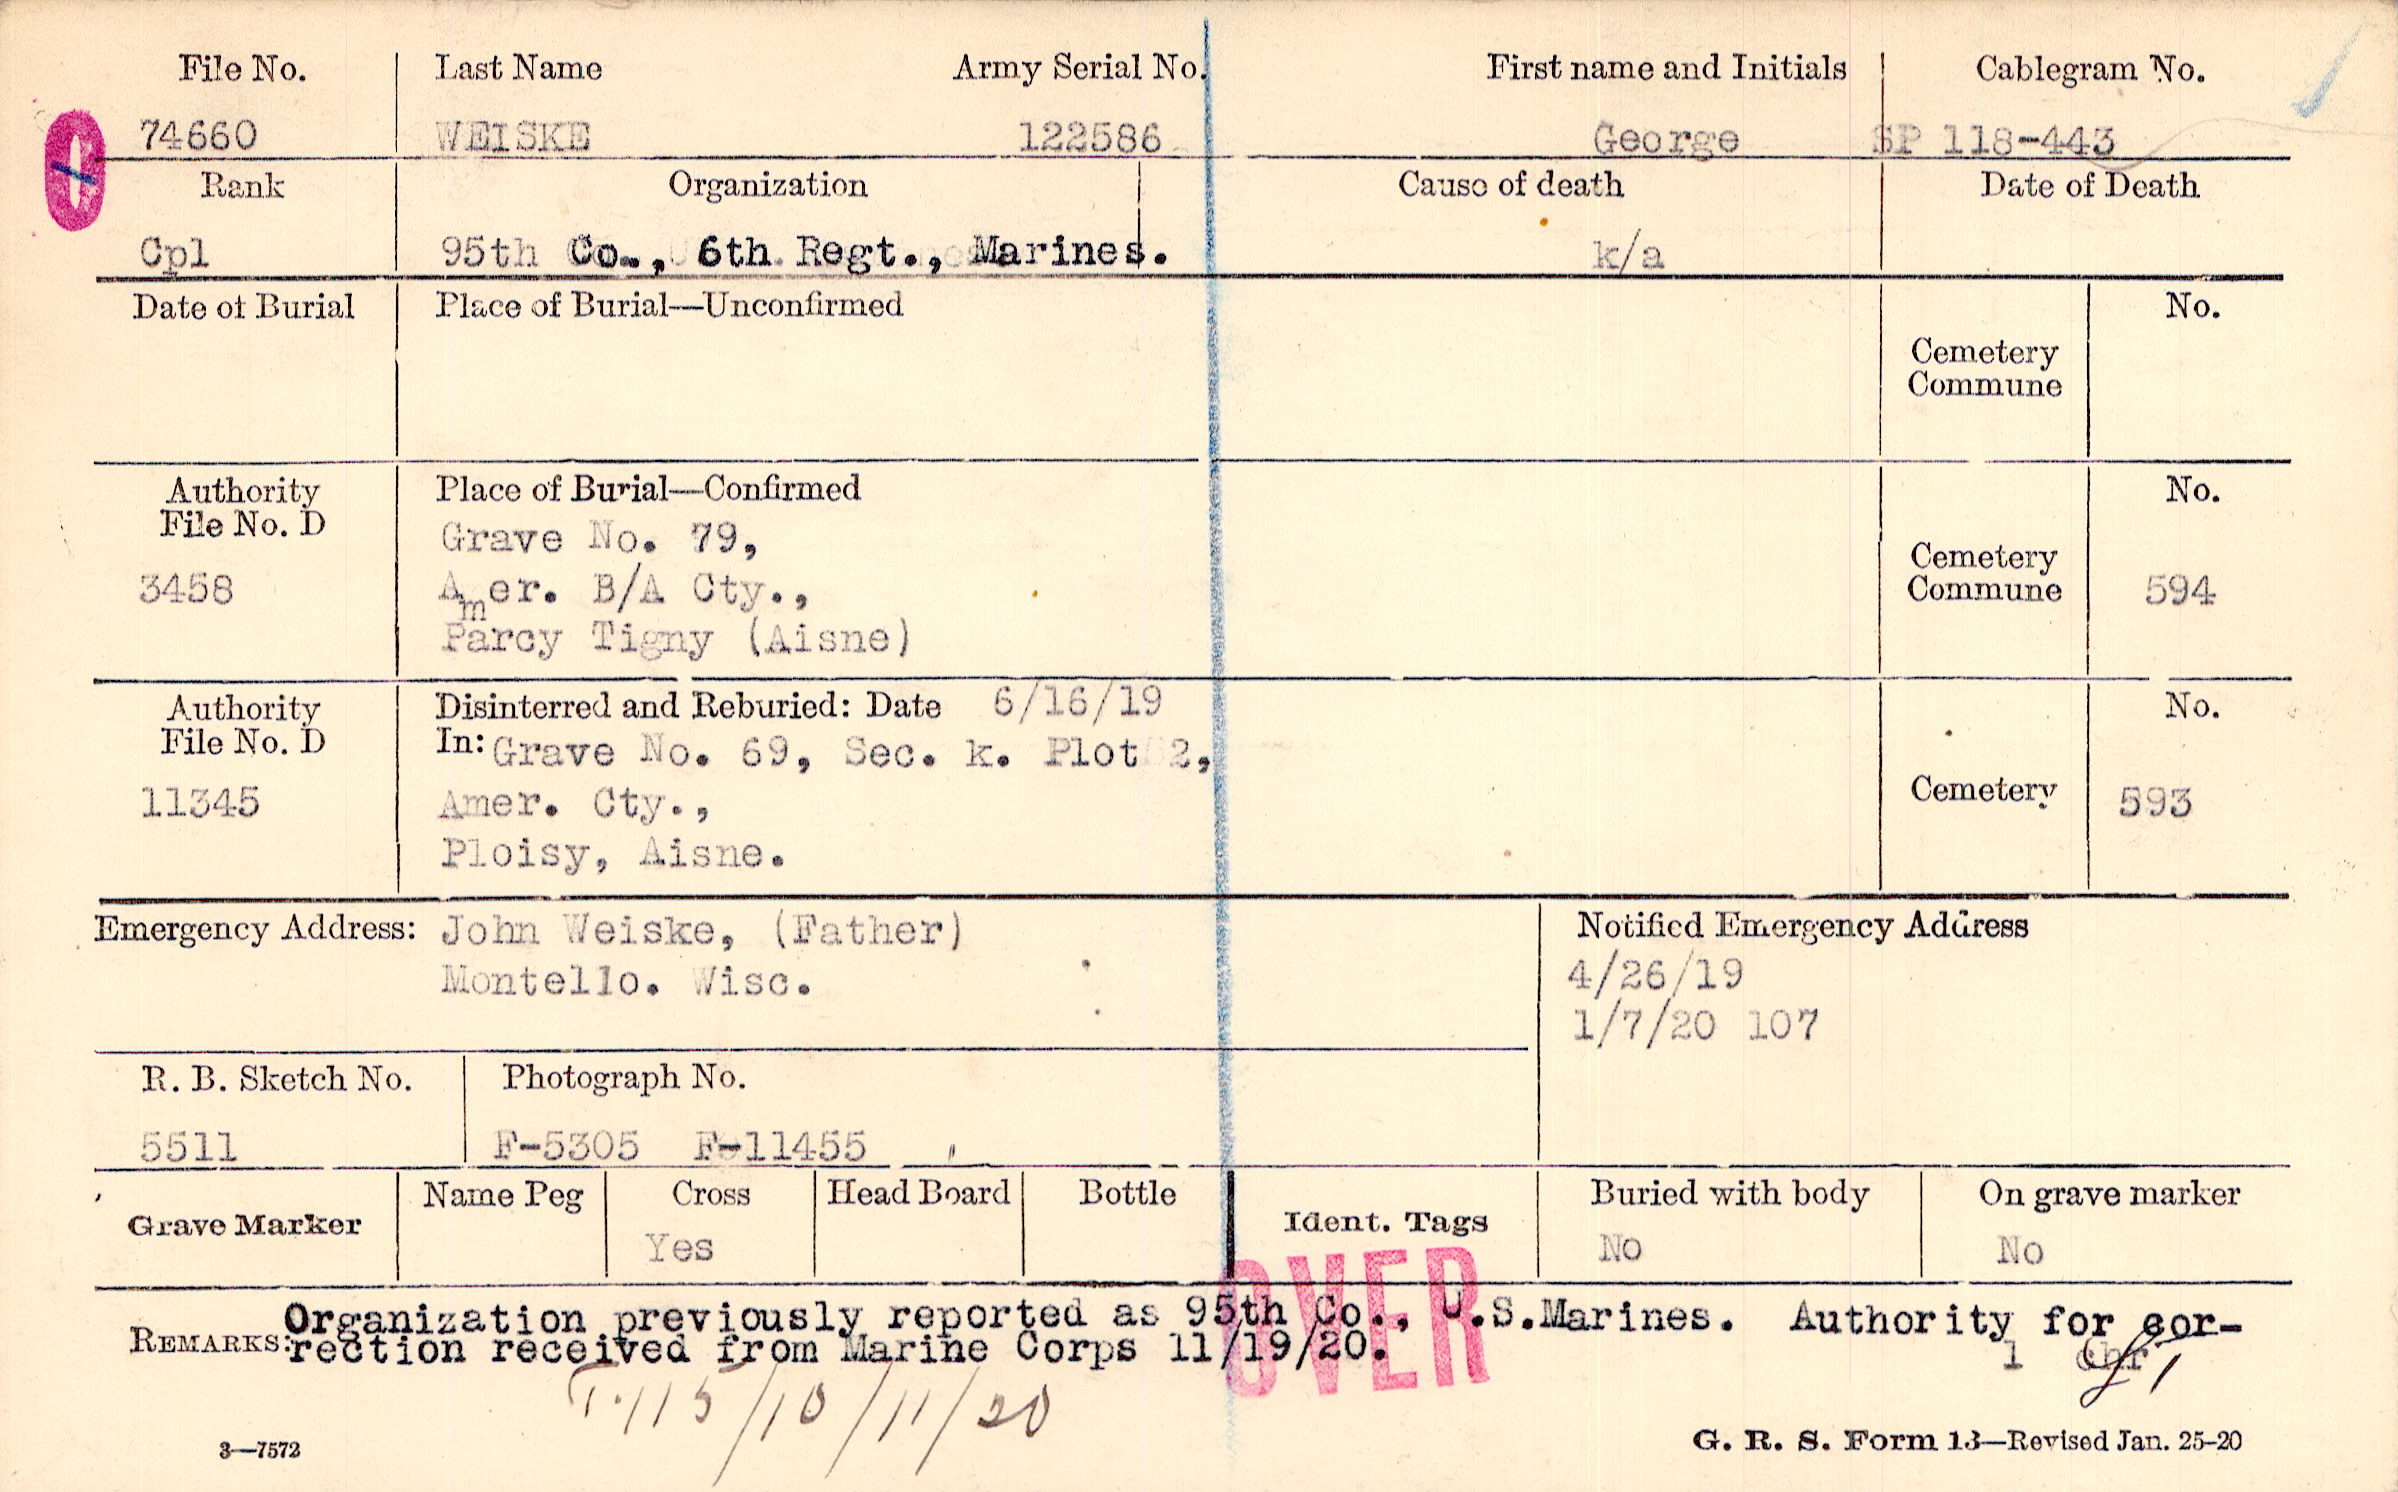 File No. Last Name Army Serial No. First name and Initials Cablegram No.
74660 WEISKE 122586 George SP 118-443
Rank Organization Cause of death Date of Death
Cpl 95th Co., 6th Regt., Marines. k/a
Date of Burial Place of Burial—Unconfirmed No.
Cemetery
Commune
Authority Place of Burial—Confirmed No.
File No. D Grave No. 79,
3458 Amer. B/A Cty., Cemetery
Commune 594
Parcy Tigny (Aisne)
Authority Disinterred and Reburied: Date 6/16/19 No.
File No. D In: Grave No. 69, Sec. k. Plot 2,
11345 Amer. Cty., Cemetery 593
Ploisy, Aisne.
Emergency Address: John Weiske, (Father) Notified Emergency Address
Montello. Wisc. 4/26/19
1/7/20 107
R. B. Sketch No. Photograph No.
5511 F-5305 F-11455
Grave Marker Name Peg Cross Head Board Bottle Ident. Tags Buried with body On grave marker
Yes No No
OVER
REMARKS: Organization previously reported as 95th Co., U.S.Marines. Authority for cor-
rection received from Marine Corps 11/19/20.
1 chr
/10/11/20
3—7572 G. R. S. Form 13—Revised Jan. 25-20